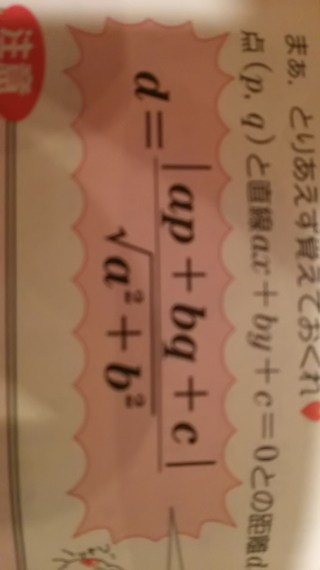 まぁ、とりあえず覚えておくれ♥
点(p, q)と直線ax+by+c=0との距離d
d = |ap+bq+c| / √a²+b²
注意